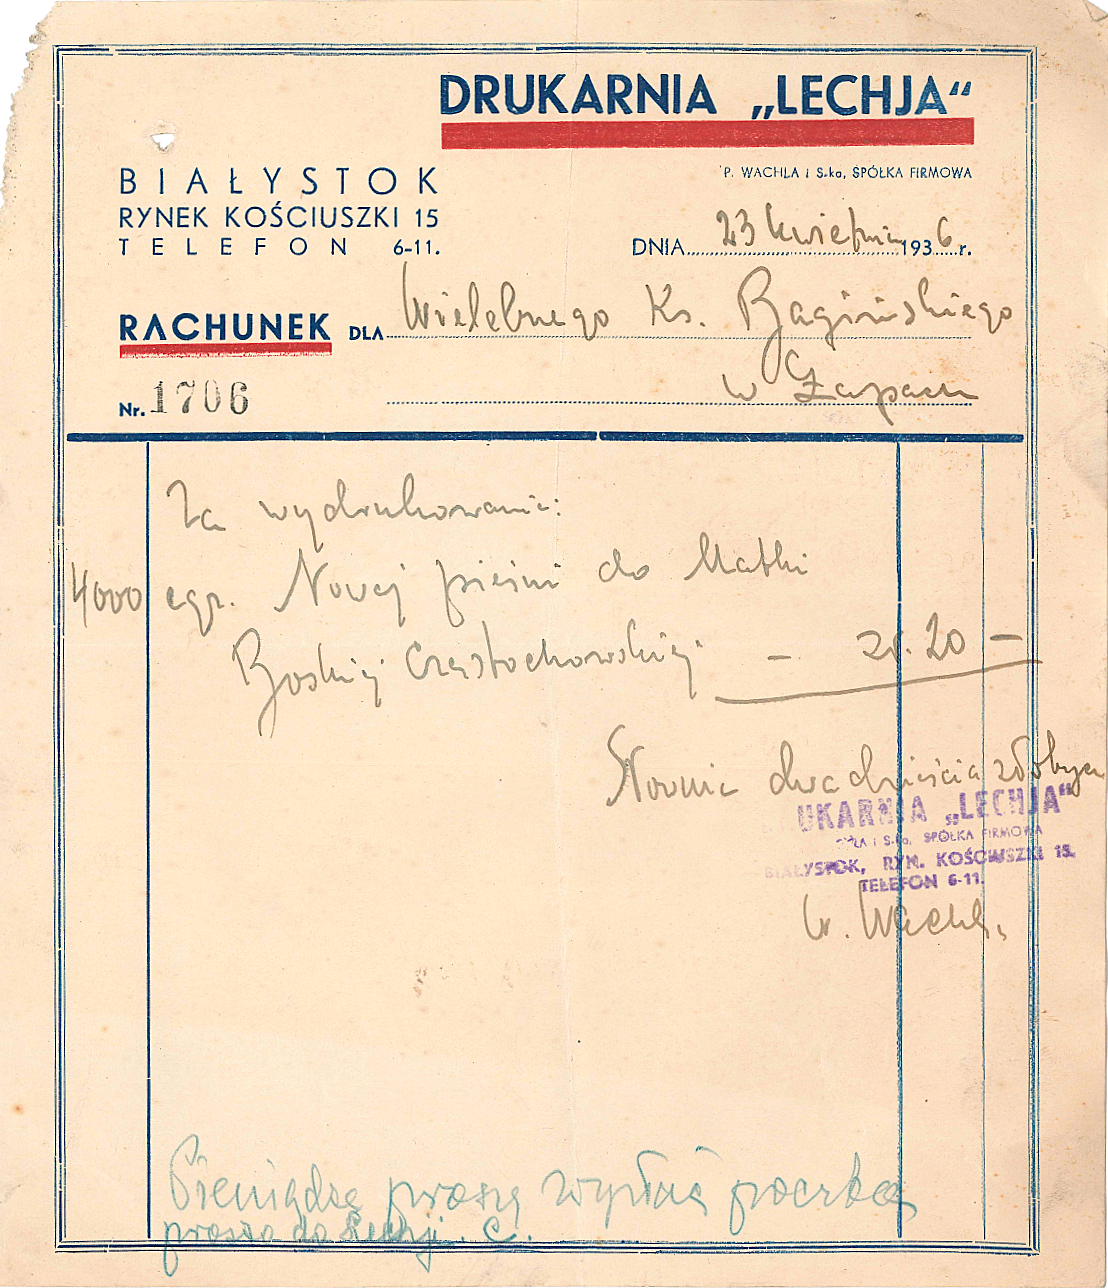 DRUKARNIA „LECHJA“
P. WACHLA i S-ka, SPÓŁKA FIRMOWA
BIAŁYSTOK
RYNEK KOŚCIUSZKI 15
TELEFON 6-11.
DNIA 23 kwietnia 1936 r.
RACHUNEK DLA Wielebnego Ks. Bagińskiego
w Łapach
Nr. 1706
Za wydrukowanie:
4000 egz. Nowej pieśni do Matki
Boskiej Częstochowskiej — zł. 20 —
Słownie dwadzieścia złotych
UKARNIA „LECHJA“
i S-ka, SPÓŁKA FIRMOWA
BIAŁYSTOK, RYN. KOŚCIUSZKI 15.
TELEFON 6-11.
W. Wachla
Pieniądze proszę wysłać pocztą
proszę do Lechji.